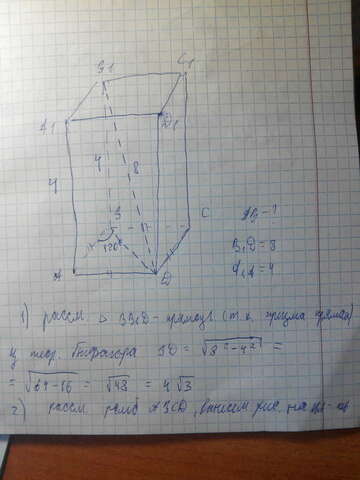 B1 C1
A1 D1
4 4 8
B C
120°
A D
AB - ?
B1D = 8
A1A = 4
1) рассм. △ BB1D - прямоуг. (т.к. призма прямая)
по теор. Пифагора BD = √8² - 4² =
= √64 - 16 = √48 = 4√3
2) рассм. ромб ABCD, вынесем рис. на